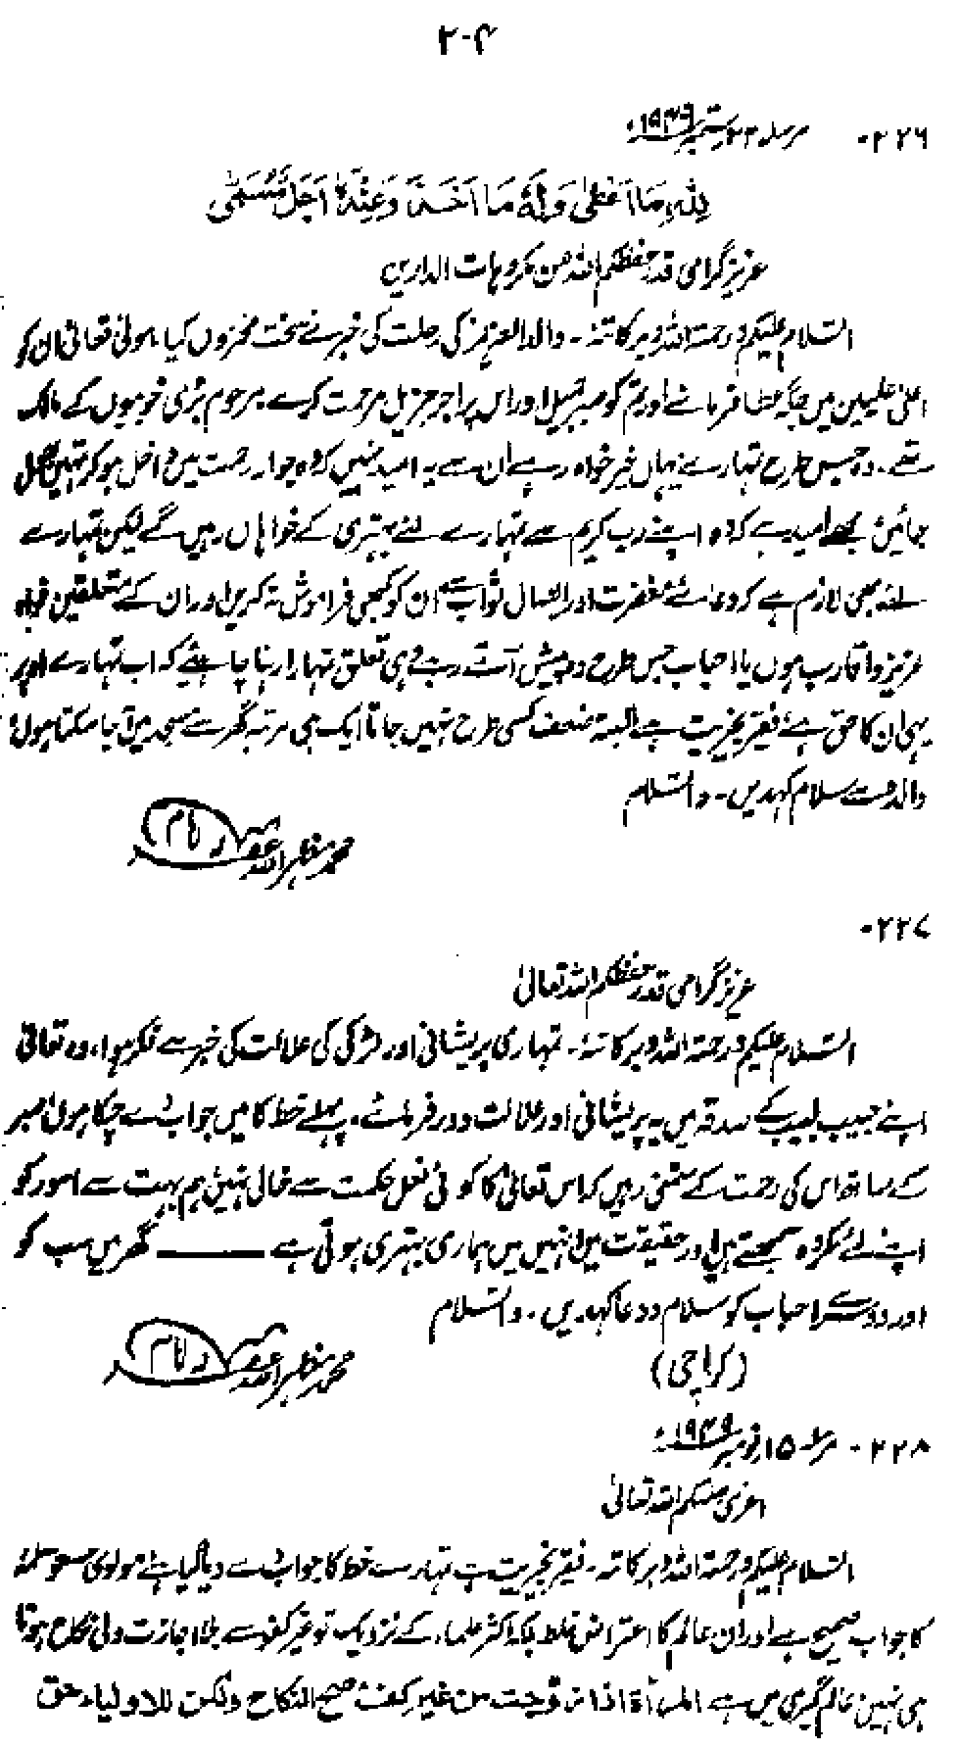 ۲۰۴
۲۲۶۔ مرسلہ ۲۳ ستمبر ۱۹۴۹ء
لِلّٰہِ مَا اَعْطٰی وَلَہٗ مَا اَخَذَ وَعِنْدَہٗ اَجَلٌ مُّسَمًّی
عزیز گرامی قدر حفظکم اللہ من مکروہات الدارین
السلام علیکم ورحمۃ اللہ وبرکاتہٗ۔ والد العزیز کی رحلت کی خبر نے سخت محزوں کیا، مولیٰ تعالیٰ ان کو
اعلیٰ علیین میں جگہ عطا فرمائے اور تم کو صبر جمیل اور اس پر اجر جزیل مرحمت کرے۔ مرحوم بڑی خوبیوں کے مالک
تھے۔ وہ جس طرح تمہارے یہاں خیر خواہ رہے ان سے یہ امید نہیں کہ وہ جوار رحمت میں داخل ہو کر تمہیں بھول
جائیں مجھے امید ہے کہ وہ اپنے رب کریم سے تمہارے لئے بہتری کے خواہاں رہیں گے لیکن تمہارے
لئے بھی لازم ہے کہ دعائے مغفرت اور ایصال ثواب سے ان کو کبھی فراموش نہ کریں اور ان کے متعلقین خواہ
عزیز و اقارب ہوں یا احباب جس طرح وہ پیش آتے رہے وہی تعلق تمہارا رہنا چاہئیے کہ اب تمہارے اوپر
یہی ان کا حق ہے، فقیر بخیریت ہے البتہ ضعف کسی طرح نہیں جاتا ایک ہی مرتبہ گھر سے مسجد میں آ جا سکتا ہوں،
والدہ سے سلام کہدیں۔ والسلام
محمد مظہر اللہ غفرلہ
۲۲۷۔
عزیز گرامی قدر حفظکم اللہ تعالیٰ
السلام علیکم ورحمۃ اللہ وبرکاتہٗ۔ تمہاری پریشانی اور لڑکی کی علالت کی خبر سے فکر ہوا، وہ تعالیٰ
اپنے حبیب لبیب کے صدقہ میں یہ پریشانی اور علالت دور فرمائے، پہلے خط کا میں جواب دے چکا ہوں، صبر
کے ساتھ اس کی رحمت کے متمنی رہیں کہ اس تعالیٰ کا کوئی فعل حکمت سے خالی نہیں، ہم بہت سے امور کو
اپنے لئے مکروہ سمجھتے ہیں اور حقیقت میں انہیں میں ہماری بہتری ہوتی ہے ——— گھر میں سب کو
اور دوسرے احباب کو سلام و دعا کہدیں۔ والسلام
محمد مظہر اللہ غفرلہ
(کراچی)
۲۲۸۔ مرسلہ ۱۵ نومبر ۱۹۴۹ء
اعزی سلمکم اللہ تعالیٰ
السلام علیکم ورحمۃ اللہ وبرکاتہ۔ فقیر بخیریت ہے تمہارے خط کا جواب دے دیا گیا ہے، مولوی مسعود سلمہٗ
کا جواب صحیح ہے اور ان عالم کا اعتراض غلط بلکہ اکثر علماء کے نزدیک تو غیر کفو سے بلا اجازت ولی نکاح ہوتا
ہی نہیں عالم گیری میں ہے المرأۃ اذا زوجت من غیر کفء صح النکاح ولکن للاولیاء حق